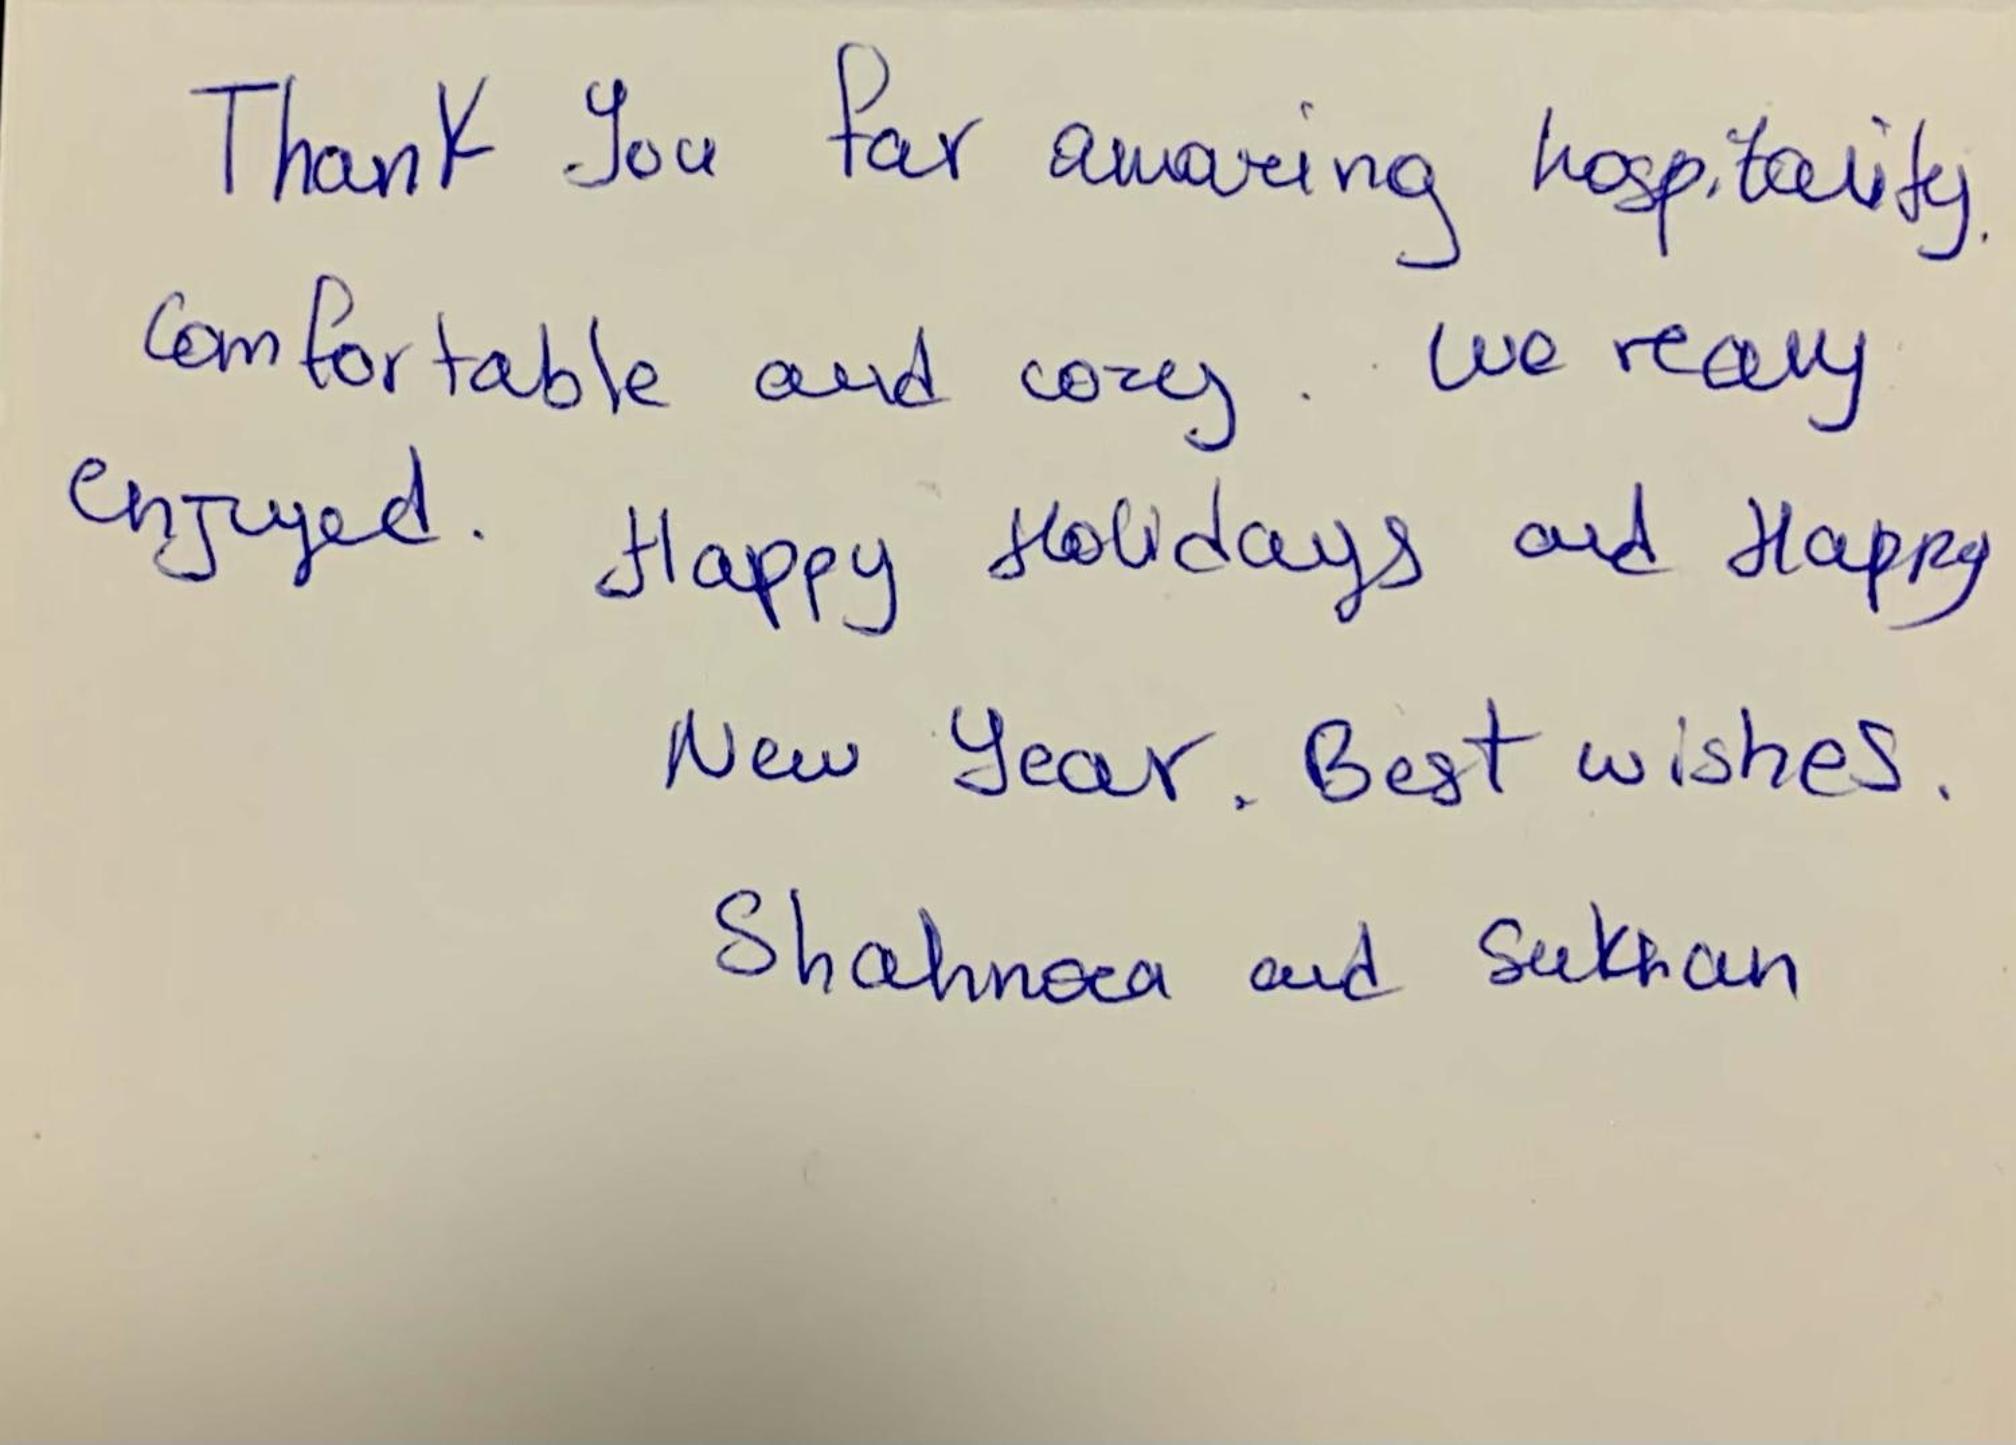 Thank You for amazing hospitality.
Comfortable and cozy. We really
enjoyed. Happy Holidays and Happy
New Year. Best wishes.
and